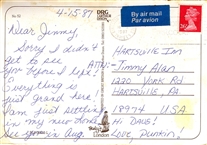 4-25-87
DRG
By air mail
Par avion
Dear Jimmy,
Sorry I didn't
get to see
you before I left!
Everything is
just grand here!
I am just settling
in my new home.
See ya in Aug.
Hartsville Inn
ATTN: Jimmy Alan
1220 York Rd
Hartsville, PA
18974 USA
Hi Dave!
Love, Dunkin!
London